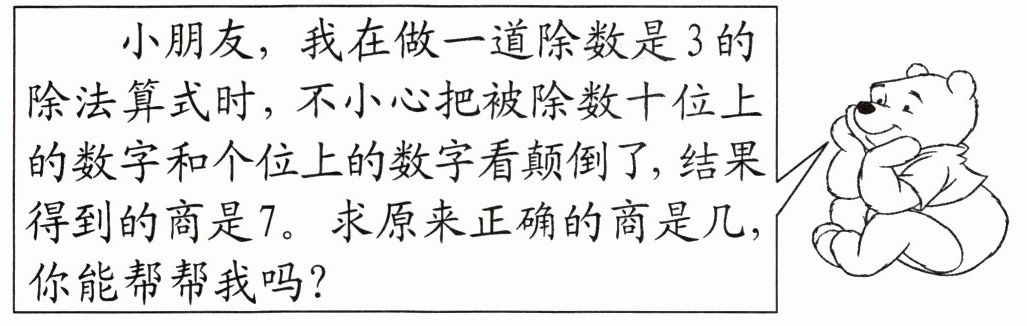 小朋友，我在做一道除数是3的
除法算式时，不小心把被除数十位上
的数字和个位上的数字看颠倒了，结果
得到的商是7。求原来正确的商是几，
你能帮帮我吗？